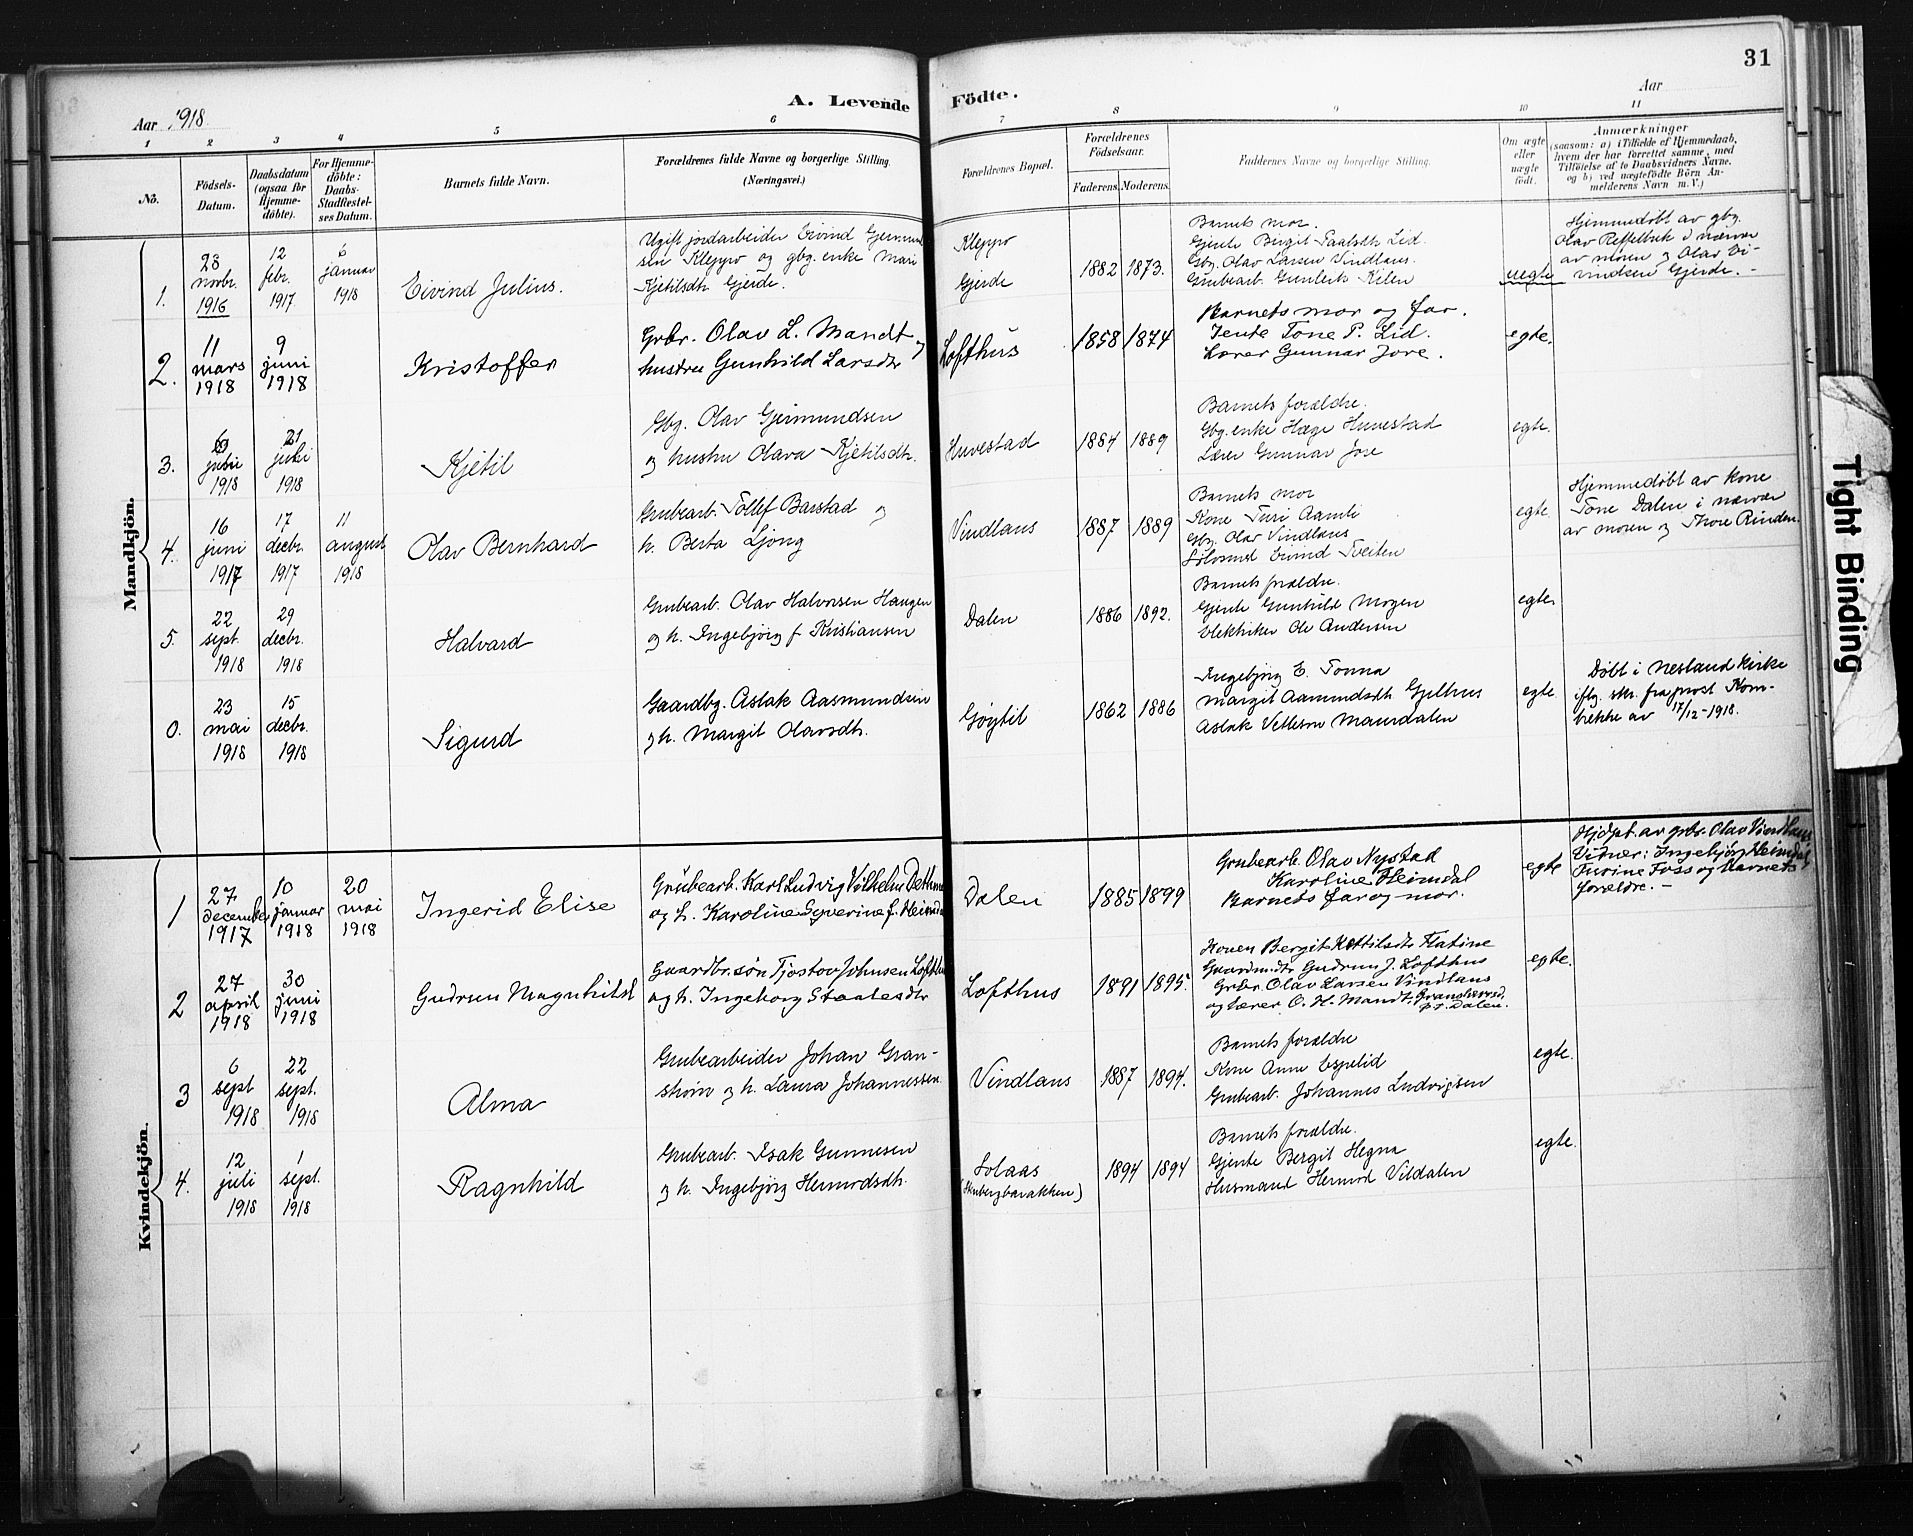 31
A. Levende Födte.
Aar 1918.
Aar
1 2 3 4 5 6 7 8 9 10 11
No.
Födsels-
Datum.
Daabsdatum
(ogsaa for
Hjemme-
döbte).
For Hjemme-
döbte:
Daabs-
Stadfæstel-
ses Datum.
Barnets fulde Navn.
Forældrenes fulde Navne og borgerlige Stilling.
(Næringsvei.)
Forældrenes Bopæl.
Forældrenes
Födselsaar.
Faderens. Moderens.
Faddernes Navne og borgerlige Stilling.
Om ægte
eller
uægte
født.
Anmærkninger
(saasom: a) i Tilfælde af Hjemmedaab,
hvem der har forrettet samme, med
Tilföielse af to Daabsvidners Navne.
og b) ved uægtefödte Börn An-
melderens Navn m. V.)
Mandkjön.
1.
28
novbr.
1916
12
febr.
1917
6
januar
1918
Eivind Julius.
Ugift jordarbeider Eivind Gjermund
sen Kleppo og gbg. enke Mari
Kjetilsdtr. Gjerde.
Kleppo
Gjerde
1882 1873.
Barnets mor.
Gjente Birgit Saalsdtr. Lid.
Gbg. Olav Larsen Vindlaus.
Grubearb. Gunleik Kilen
uegte
Hjemmedøbt av gbg.
Olav i nærvær
av moren og Olav Ei-
vindsen Gjerde. -
2.
11
mars
1918
9
juni
1918
Kristoffer
Grbr. Olav L. Mandt og
hustru Gunhild Larsdtr
Lofthus
1858 1874
Barnets mor og far.
Jente Tone P. Lid.
Lærer Gunnar Jore.
egte.
3.
6
juli
1918
21
juli
1918
Kjetil
Gbg. Olav Gjermundsen
og hustru Olava Kjetilsdtr.
Huvestad
1884 1889
Barnets forældre.
Gbg. enke Hæge Huvestad
Lærer Gunnar Jore
egte.
4.
16
juni
1917
17
decbr.
1917
11
august
1918
Olav Bernhard
Grubearb. Tollef Barstad og
h. Berta Ljong
Vindlaus
1887 1889
Barnets mor
Kone Turi Aamli
Gbg. Olav Vindlaus
Eivind Tveiten
egte
Hjemmedøbt av kone
Tone Dalen i nærvær
av moren og Thore Rinden.
5.
22
sept.
1918
29
decbr.
1918
Halvard
Grubearb. Olav Halvorsen Haugen
og h. Ingebjørg f. Kristiansen
Dalen
1886 1892.
Barnets forældre.
Gjente Gunhild Mogen
Elektriker Ole Andersen
egte.
0.
23
mai
1918
15
decbr.
1918
Sigurd
Gaardbg. Aslak Aasmundsen
og h. Margit Olavsdtr.
Gøytil
1862 1886
Ingebjørg E. Tonna
Margit Aamundsdtr
Aslak Vetlesen Maurdalen
egte
Døbt i Nesland kirke
iflg. skr. fra prost Kom-
av 17/12-1918.
Kvindekjön.
1
27
december
1917
10
januar
1918
20
mai
1918
Ingerid Elise
Grubearb. Karl Ludvig Vilhelm
og h. Karoline Syverine f. Heimdal
Dalen
1885 1899
Grubearb. Olav Nystad
Karoline Heimdal
Barnets far og mor.
egte
Hjdpt. av grbr. Olav Vindlaus
Vidner: Ingebjørg Heimdal
Turine Foss og barnets
forældre. -
2
27
april
1918
30
juni
1918
Gudrun Magnhild
Gaardbr. søn Tjostov Johnsen Lofthus
og h. Ingeborg Staalesdtr
Lofthus
1891 1895.
Konen Bergit Kittilsdtr Flatine
Gaardm.dtr Gudrun J. Lofthus
Grbr. Olav Larsen Vindlaus
og lærer O. H. Mandt,
p. t. Dalen.
egte.
3
6
sept
1918
22
sept.
1918
Alma
Grubearbeider Johan Gran-
strøm og h. Laura Johannessen
Vindlaus
1887 1894.
Barnets forældre
Kone Anne Espelid
Grubearb. Johannes Ludvigsen
egte.
4.
12
juli
1918
1
sept.
1918
Ragnhild
Grubearb. Isak Gunnesen
og h. Ingebjørg Hermodsdtr.
Solaas
1894 1894
Barnets forældre.
Gjente Bergit Hegna
Husmand Hermod Vildalen
egte.
Tight Binding